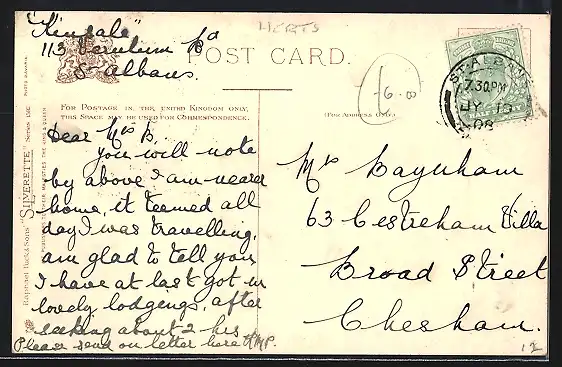 "Kinsale"
113 Verulum Rd
St Albans.
HERTS
POST CARD.
6.00
ST ALBANS
7.30 PM
JY 13
08
FOR POSTAGE IN THE UNITED KINGDOM ONLY,
THIS SPACE MAY BE USED FOR CORRESPONDENCE.
(FOR ADDRESS ONLY.)
Raphael Tuck & Sons' "SILVERETTE" Series
Dear Mrs B.
you will note
by above I am nearer
home, it teemed all
day I was travelling,
am glad to tell you
I have at last got in
lovely lodgings, after
seeking about 2 hrs
Please send on letter here
Mrs Baynham
63 Cestreham Villa
Broad Street
Chesham.